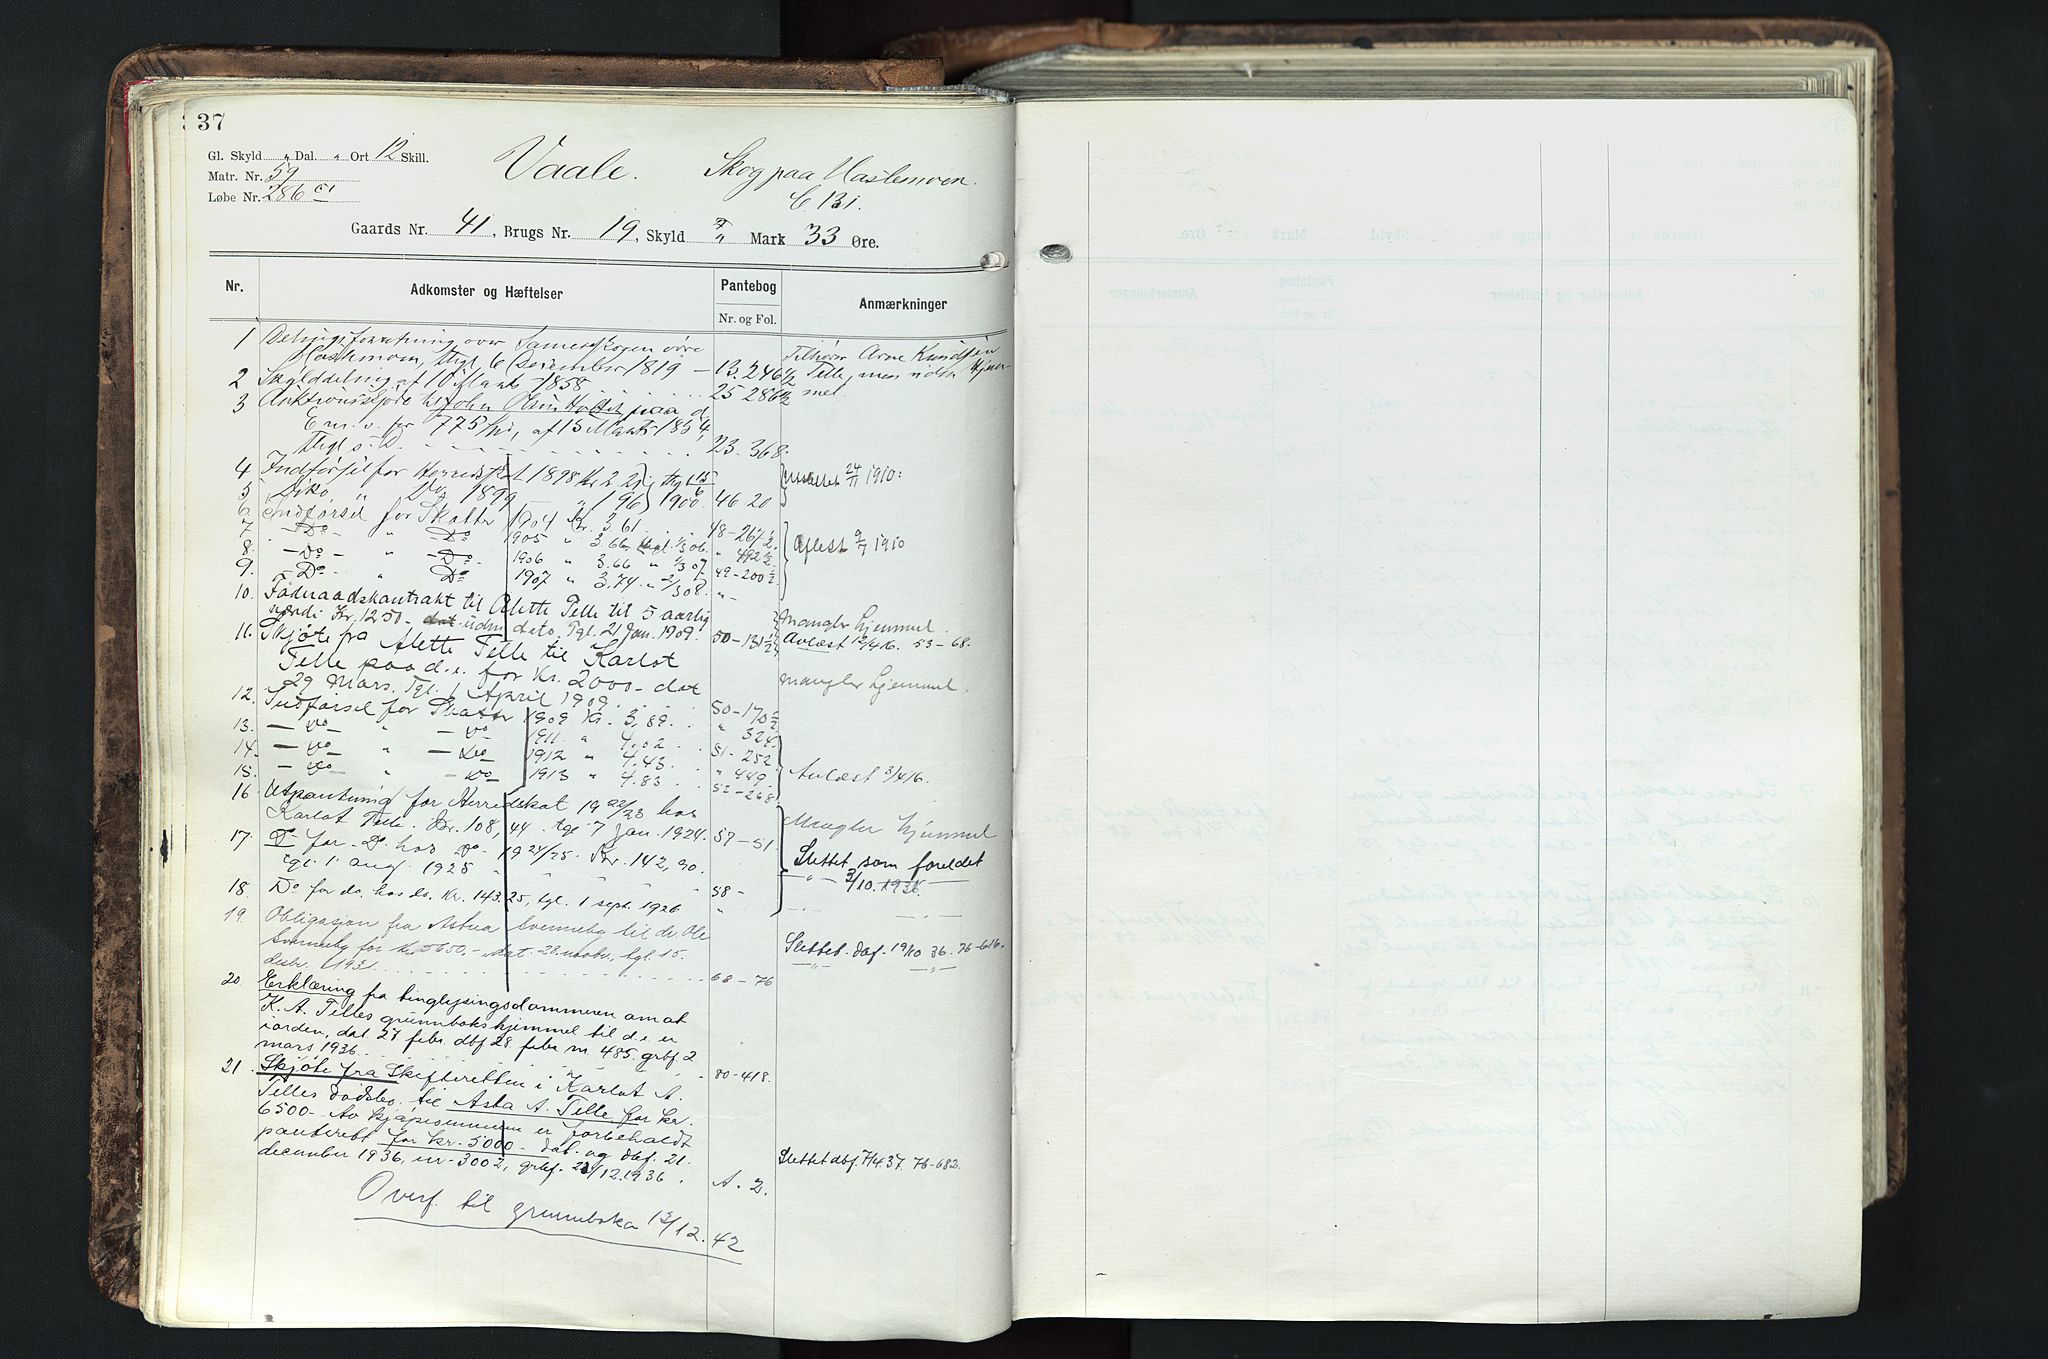 37
Gl. Skyld „ Dal. „ Ort 12 Skill.
Matr. Nr. 59
Løbe Nr. 286 c1
Vaale. Skog paa Haslemoen.
C. 131.
Gaards Nr. 41, Brugs Nr. 19, Skyld „ Mark 33 Øre.
Nr. Adkomster og Hæftelser Pantebog Anmærkninger
Nr. og Fol.
1 Delingsforretning over Sameieskogen
Haslemoen, thgl. 6 December 1819 — 13. 246½
Tilhører Arne Knudsen
Telle, men uden Hjem-
mel.
2 Skylddeling af 10 Marts 1858 25 286½
3 Auktionsskjøde til John Olsen paa d
E m. v. for 775 af 15 Marts 1854,
thgl. s. D. 23. 368.
4 Indførsel for Herredskat 1898 Kr 2 thgl 15/6
5 Diko „ Do 1899 — „ 196 1900 46 20
24/11 1910:
6 Indførsel for Skatter 1904 Kr. 3.61. 48-267½
7 — Do — „ — Do 1905 „ 3.66 thgl. 1/3 06. „ 492½
8. — Do — „ — Do — 1906 „ 3.66 „ 1/3 07. 49-200½
9. — Do — „ Do 1907 „ 3.74 „ 2/3 08. „ -
Aflest 9/7 1910
10. Føderaadskontrakt til Alette Telle til 5 aarlig
værdi Kr. 1250 - dat uden dato. Tgl. 21 Jan. 1909. 50-131½
mangler hjemmel.
Avlæst 12/4 16. 53-68.
11. Skjøte fra Alette Telle til Karlot
Telle paa d.e. for Kr. 2000 - dat
29 Mars. Tgl. 1 April 1909. 50-170½
mangler hjemmel.
12. Indførsel for Skatter 1909 Kr. 3,89. „ 324.
13. — Do „ — Do 1911 „ 4.02 51-252.
14. — Do „ — Do 1912 „ 4.43. „ 449.
15. — Do „ — Do 1913 „ 4.83 52-268
Avlæst 3/4 16.
16. Utpantning for Herredskat 1922/23 hos
Karlot Telle. Kr. 108,44. tgl 7 Jan. 1924. 57-51
Mangler hjemmel
17. Do for - Do. hos Do - 1924/25. Kr. 142,90.
tgl. 1 aug. 1925 „ „ „ „ 58-
Slettet som foreldet
- „ - 3/10. 1936
18. Do for do. hos do. Kr. 143.25, tgl. 1 sept. 1926 „
19. Obligasjon fra Astrea Svenneby til dr. Ole
Svenneby for Kr 5650,- dat. 28. novbr. tgl. 15.
desbr. 1931. 68-76
Slettet. daf. 19/10 36. 76-616.
20. Erklæring fra tinglysingsdommeren om at
K. A. Telles grunnbokshjemmel til d.e. er
i orden, dat 27 febr. dbf 28 febr. nr. 485. grbf. 2
mars 1936. 80-418.
21. Skjøte fra Skifteretten i Karlot A.
Telles dødsbo. til Asta A. Telle for kr.
6500- Av kjøpesummen er forbeholdt
panterett for kr. 5000 - dat. og dbf. 21.
december 1936, nr. 3002, grbf. 22/12.1936. A. 2.
Slettet dbf. 7/4.37. 76-682.
Overf. til grunnboka 12/12.42